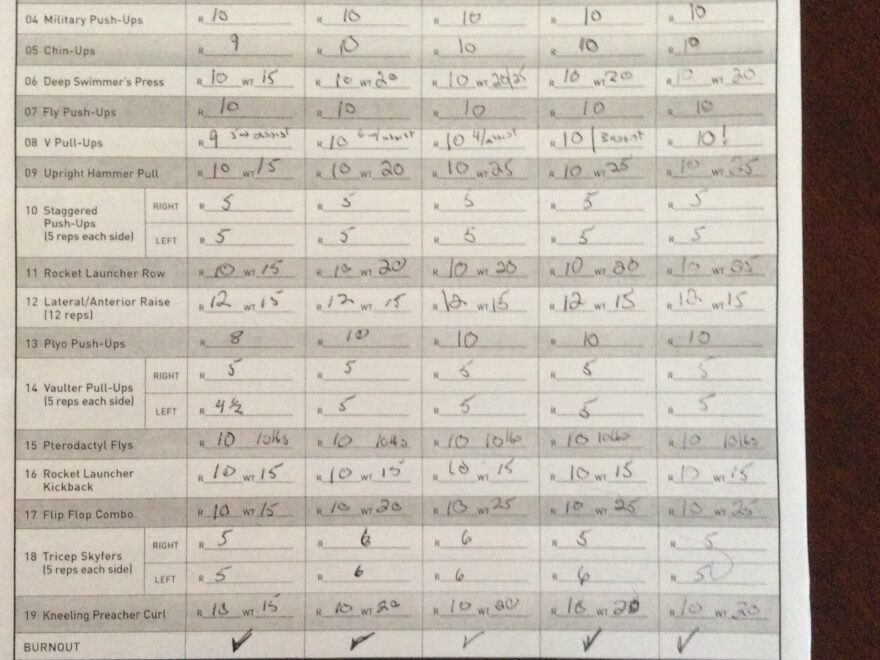 04 Military Push-Ups R 10 R 10 R 10 R 10 R 10
05 Chin-Ups R 9 R 10 R 10 R 10 R 10
06 Deep Swimmer's Press R 10 WT 15 R 10 WT 20 R 10 WT 20/25 R 10 WT 20 R 10 WT 20
07 Fly Push-Ups R 10 R 10 R 10 R 10 R 10
08 V Pull-Ups R 9 assist R 10 6 w/assist R 10 4/assist R 10 | 3 assist R 10!
09 Upright Hammer Pull R 10 WT 15 R 10 WT 20 R 10 WT 25 R 10 WT 25 R 10 WT 25
10 Staggered Push-Ups (5 reps each side)
RIGHT R 5 R 5 R 5 R 5 R 5
LEFT R 5 R 5 R 5 R 5 R 5
11 Rocket Launcher Row R 10 WT 15 R 10 WT 20 R 10 WT 20 R 10 WT 20 R 10 WT
12 Lateral/Anterior Raise (12 reps) R 12 WT 15 R 12 WT 15 R 12 WT 15 R 12 WT 15 R 12 WT 15
13 Plyo Push-Ups R 8 R 10 R 10 R 10 R 10
14 Vaulter Pull-Ups (5 reps each side)
RIGHT R 5 R 5 R 5 R 5 R 5
LEFT R 4 ½ R 5 R 5 R 5 R 5
15 Pterodactyl Flys R 10 10lbs R 10 10lbs R 10 10lb R 10 10lbs R 10 10lbs
16 Rocket Launcher Kickback R 10 WT 15 R 10 WT 15 R 10 WT 15 R 10 WT 15 R 10 WT 15
17 Flip Flop Combo R 10 WT 15 R 10 WT 20 R 10 WT 25 R 10 WT 25 R 10 WT 25
18 Tricep Skyfers (5 reps each side)
RIGHT R 5 R 6 R 6 R 5 R 5
LEFT R 5 R 6 R 6 R 6 R 5
19 Kneeling Preacher Curl R 10 WT 15 R 10 WT 20 R 10 WT 20 R 10 WT 20 R 10 WT 20
BURNOUT ✓ ✓ ✓ ✓ ✓